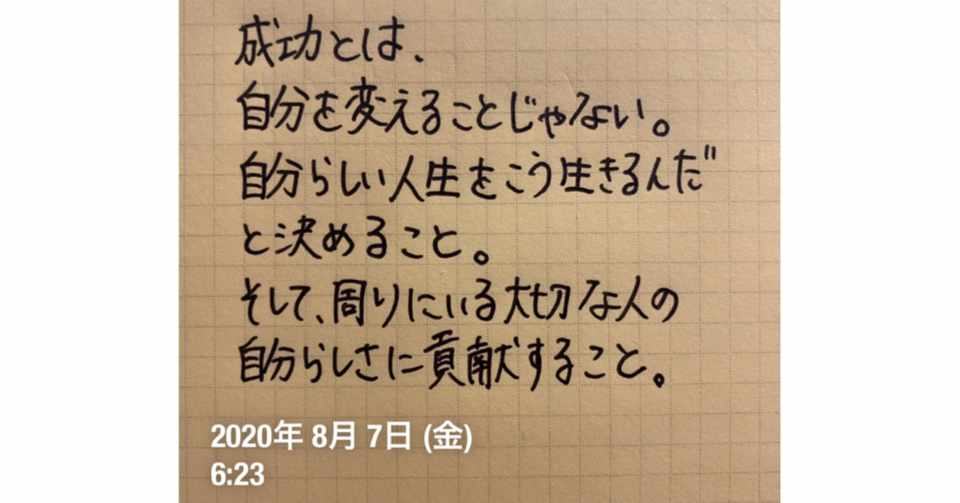 成功とは、
自分を変えることじゃない。
自分らしい人生をこう生きるんだ
と決めること。
そして、周りにいる大切な人の
自分らしさに貢献すること。
2020年 8月 7日 (金)
6:23